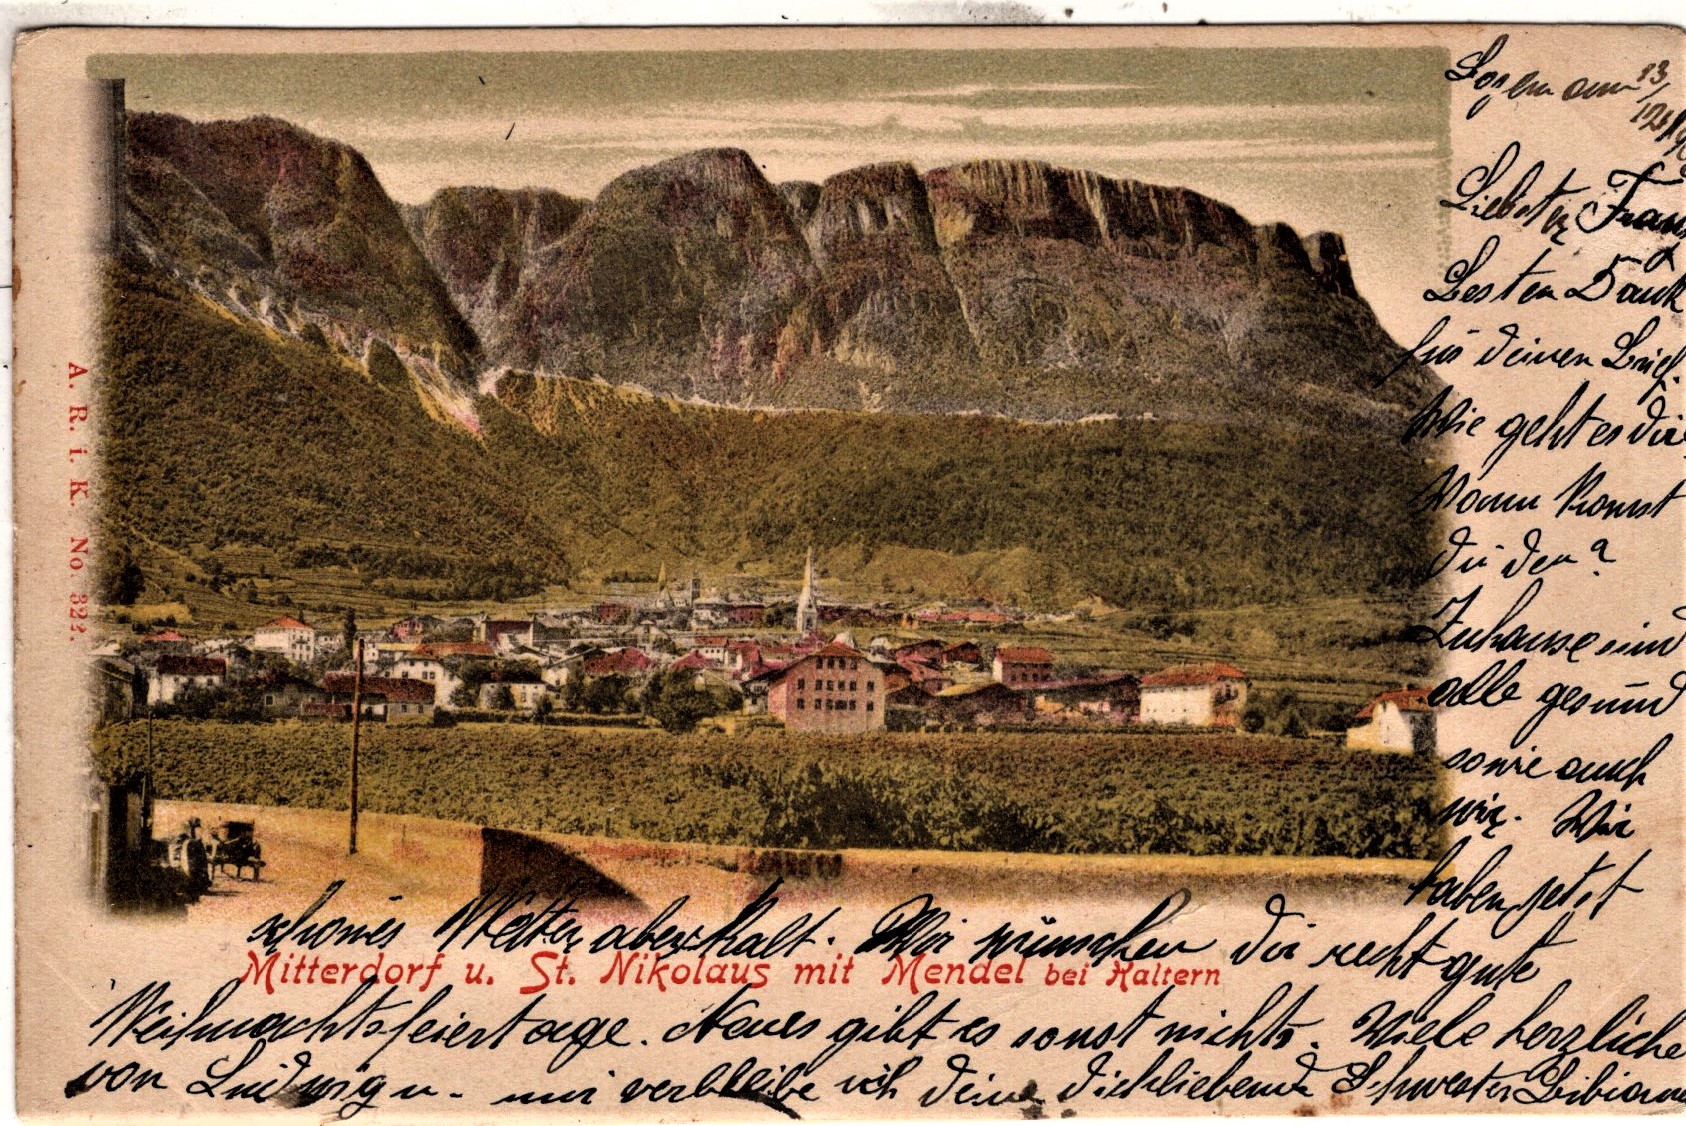 Bozen am 13/12 190
Liebster Franz
Besten Dank
für deinen Brief.
Wie geht es dir,
Wann komst
du den?
Zuhause sind
alle gesund
sowie auch
wir. Wir
haben jetzt
schönes Wetter, aber kalt. Wir wünschen dir recht gute
Weihnachtsfeiertage. Neues gibt es sonst nichts. Viele herzliche
von Ludwig u. mir verbleibe ich deine dichliebende Schwester Bibiana
Mitterdorf u. St. Nikolaus mit Mendel bei Kaltern
A. R. i. K. No. 322.